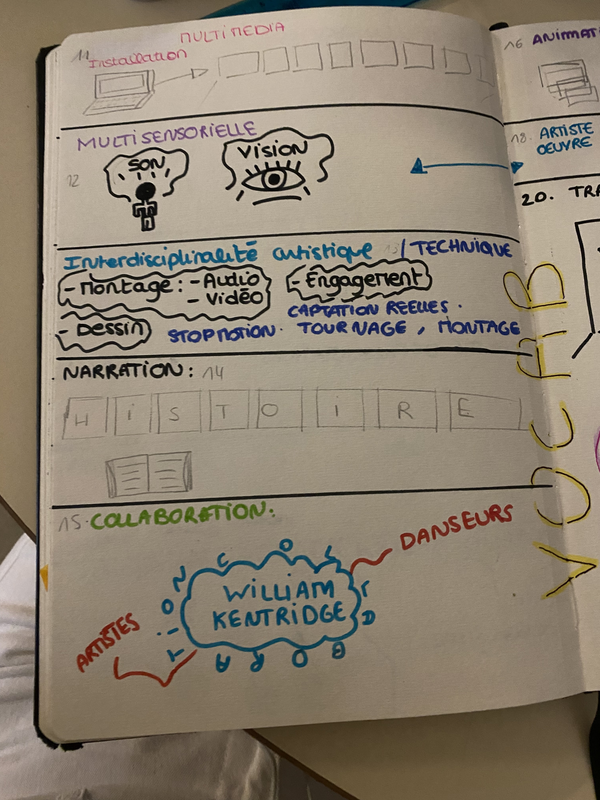 11
MULTIMEDIA
Installation
MULTISENSORIELLE
12
SON
VISION
Interdisciplinalité artistique 13 / TECHNIQUE
- Montage : - Audio
- Vidéo
- Engagement
CAPTATION REELLES.
- Dessin
STOP MOTION. TOURNAGE, MONTAGE
NARRATION: 14
HISTOIRE
15. COLLABORATION:
DANSEURS
WILLIAM
KENTRIDGE
COLLABORATION
ARTISTES
VOCAB
16 ANIMAT
18. ARTISTE
OEUVRE
20. TRA